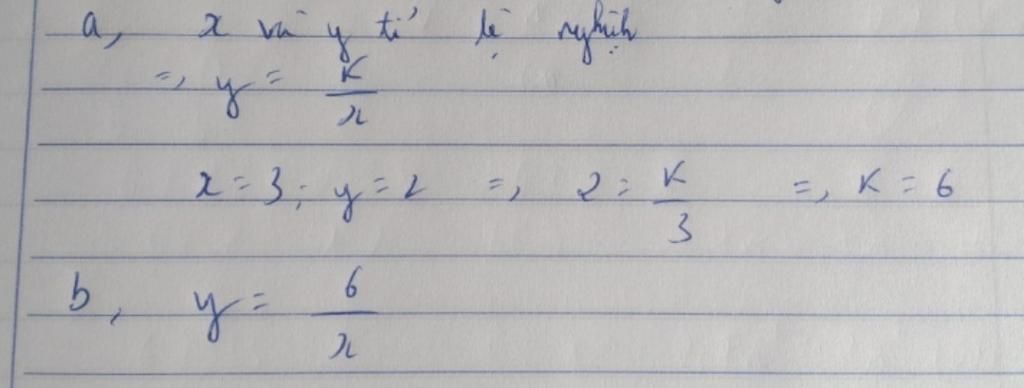 a, x và y tỉ lệ nghịch
=> y = K/x
x = 3; y = 2 => 2 = K/3 => K = 6
b, y = 6/x